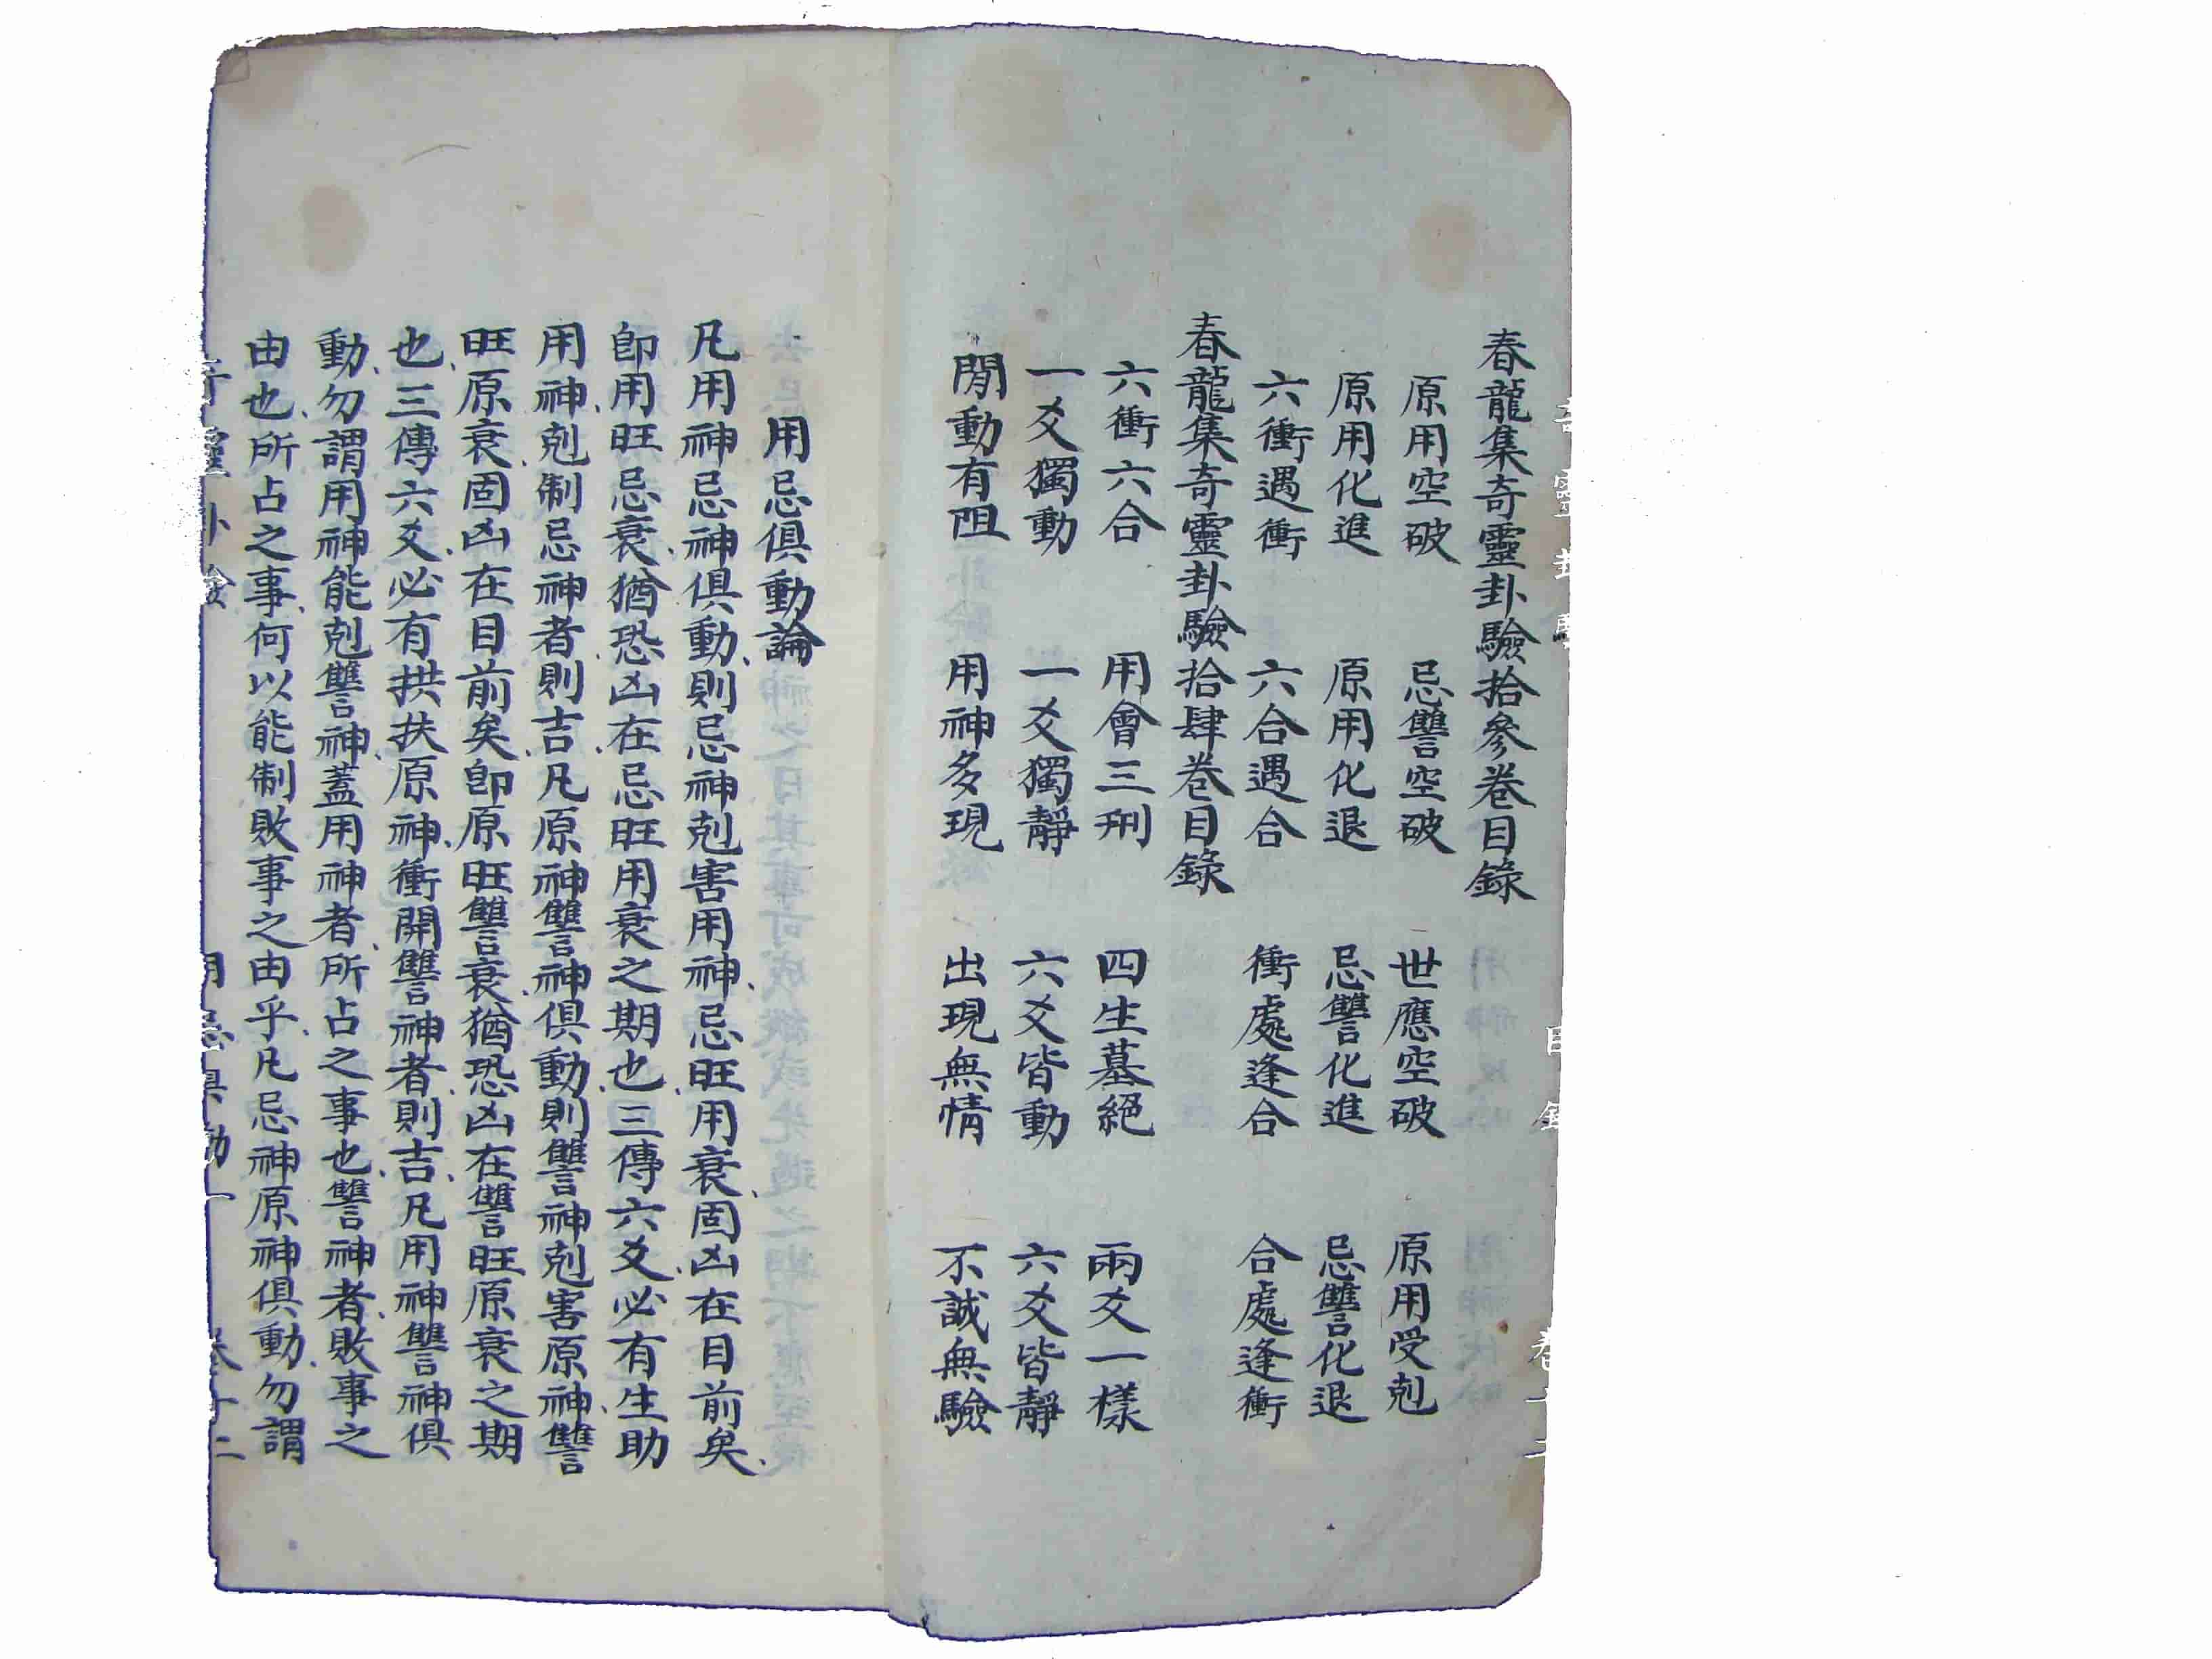 春龍集奇靈卦驗拾參卷目錄
原用空破 忌讐空破 世應空破 原用受剋
原用化進 原用化退 忌讐化進 忌讐化退
六衝遇衝 六合遇合 衝處逢合 合處逢衝
春龍集奇靈卦驗拾肆卷目錄
六衝六合 用會三刑 四生墓絕 兩爻一樣
一爻獨動 一爻獨靜 六爻皆動 六爻皆靜
閒動有阻 用神多現 出現無情 不誠無驗
用忌俱動論
凡用神忌神俱動、則忌神剋害用神、忌旺用衰、固凶在目前矣、
卽用旺忌衰、猶恐凶在忌旺用衰之期也、三傳六爻、必有生助
用神、剋制忌神者則吉、凡原神讐神俱動、則讐神剋害原神、讐
旺原衰、固凶在目前矣、卽原旺讐衰、猶恐凶在讐旺原衰之期
也、三傳六爻、必有拱扶原神、衝開讐神者、則吉、凡用神讐神俱
動、勿謂用神能剋讐神、蓋用神者、所占之事也、讐神者、敗事之
由也、所占之事、何以能制敗事之由乎、凡忌神原神俱動、勿謂